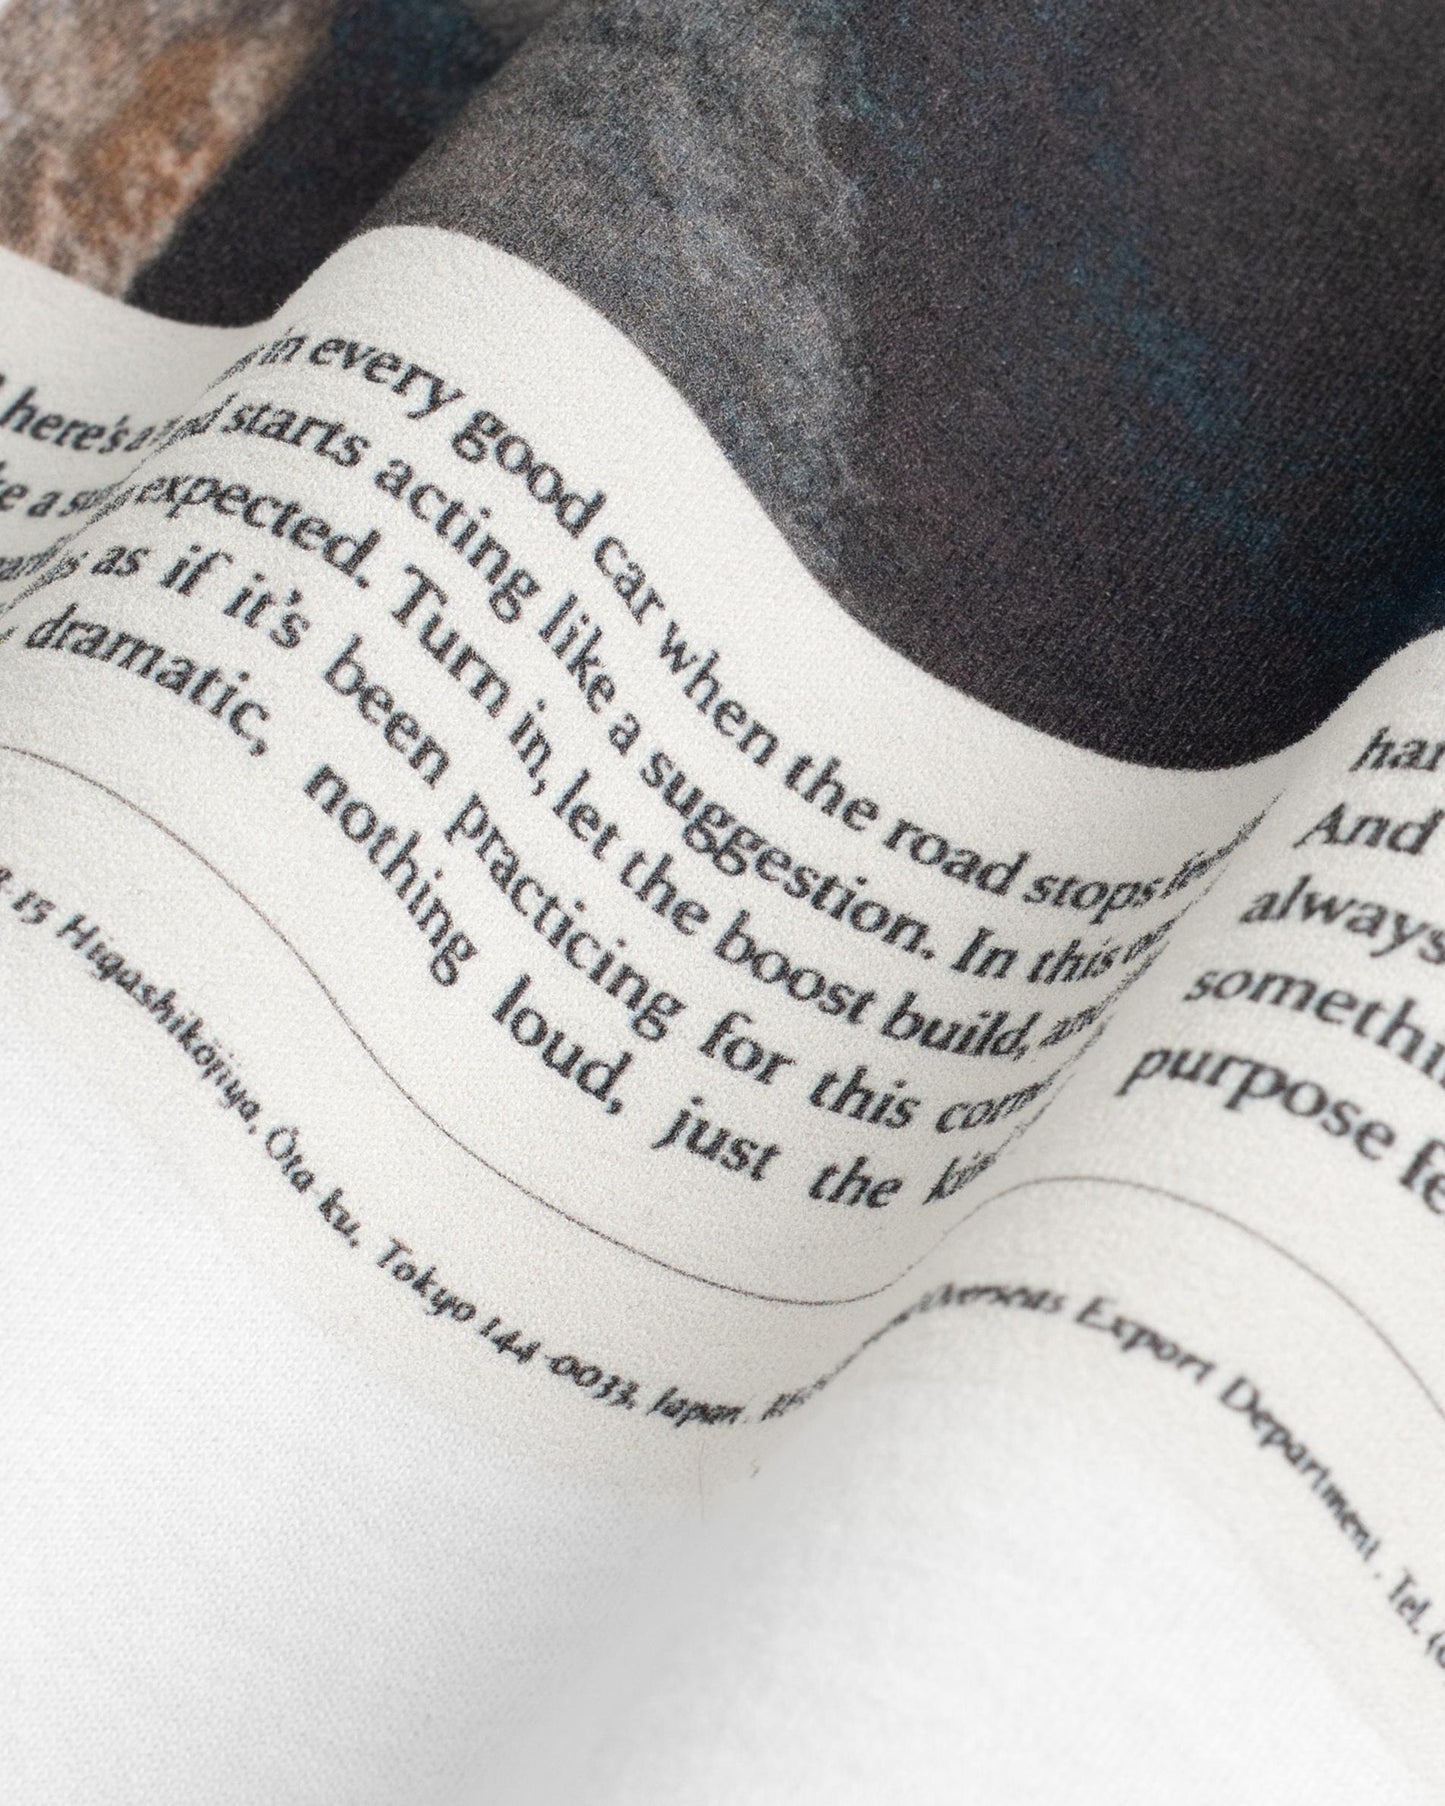 here's a in every good car when the road stops
a starts acting like a suggestion. In this
expected. Turn in, let the boost build, and
as if it's been practicing for this
dramatic, nothing loud, just the
har
And
always
somethi
purpose fe
15 Higashikōjiya, Ōta ku, Tokyo 144-0033, Japan.
Overseas Export Department. Tel.